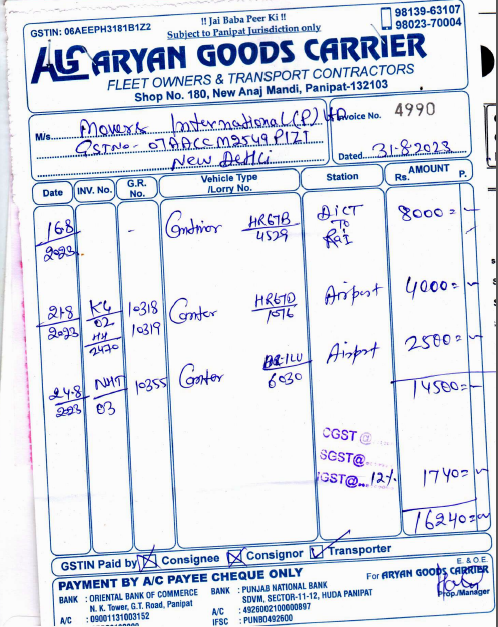 GSTIN: 06AEEPH3181B1Z2
!! Jai Baba Peer Ki !!
Subject to Panipat Jurisdiction only
98139-63107
98023-70004
ALS ARYAN GOODS CARRIER
FLEET OWNERS & TRANSPORT CONTRACTORS
Shop No. 180, New Anaj Mandi, Panipat-132103
M/s. Movers International (P) LTD
GST No- 07AACCM2549P1Z1
New Delhi
Invoice No. 4990
Dated 31-8-2023
Date INV. No. G.R. No. Vehicle Type /Lorry No. Station AMOUNT Rs. P.
16-8/2023 - HR67B/4529 DICT To RAI 8000=
21-8/2023 10318 10319 Airport 4000=
24-8/2023 NHT/03 10355 6030 Airport 2500=
14500=
CGST@
SGST@
IGST@ 12% 1740=
16240=
GSTIN Paid by Consignee Consignor Transporter
PAYMENT BY A/C PAYEE CHEQUE ONLY
E. & O.E.
For ARYAN GOODS CARRIER
BANK : ORIENTAL BANK OF COMMERCE
N. K. Tower, G.T. Road, Panipat
A/C : 09001131003152
BANK : PUNJAB NATIONAL BANK
SDVM, SECTOR-11-12, HUDA PANIPAT
A/C : 4926002100000897
IFSC : PUNB0492600
Prop./Manager